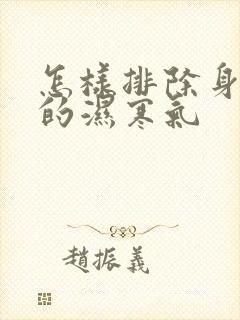 怎样排除身
的濕寒氣
趙振義